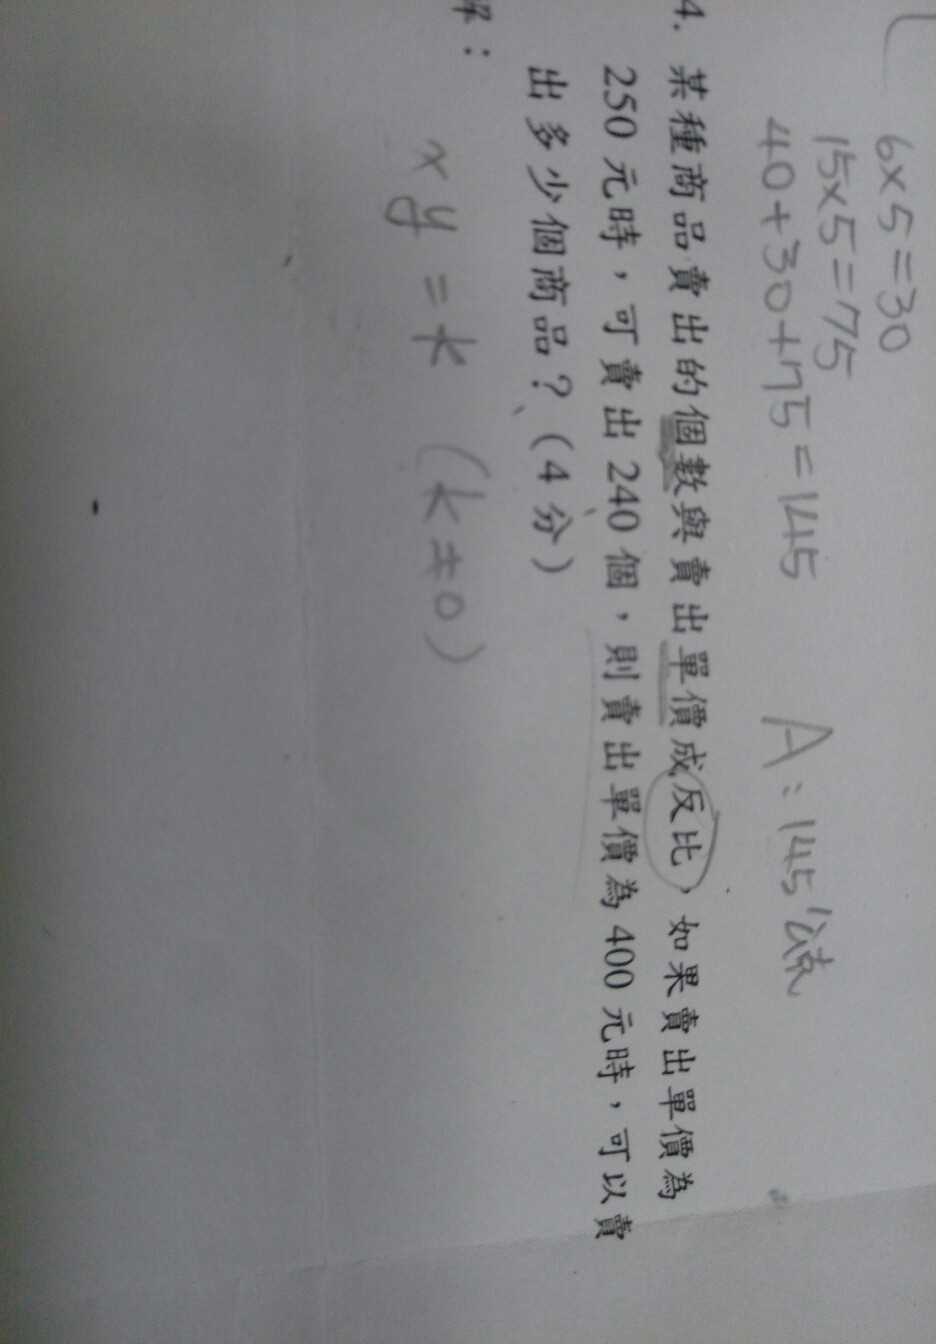 6×5=30
15×5=75
40+30+75=145 A:145公克
4. 某種商品賣出的個數與賣出單價成反比，如果賣出單價為
250元時，可賣出240個，則賣出單價為400元時，可以賣
出多少個商品？(4分)
解：
xy=k (k≠0)